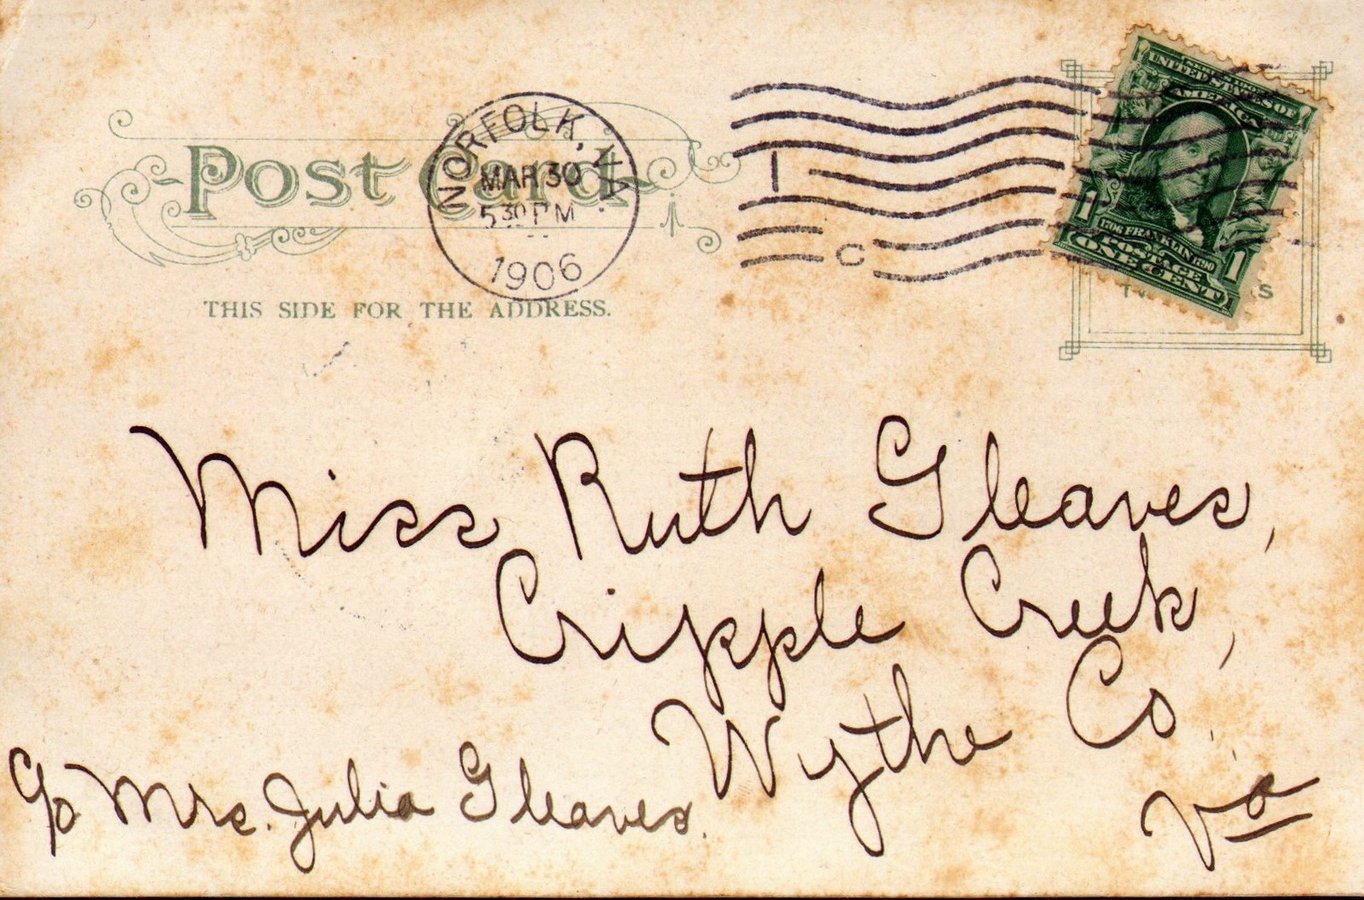 Post Card
NORFOLK, VA.
MAR 30
5 30 PM
1906
1
C
UNITED STATES OF
AMERICA
1706 FRANKLIN 1790
1 POSTAGE 1
ONE CENT
THIS SIDE FOR THE ADDRESS.
Miss Ruth Gleaves,
Cripple Creek,
Wythe Co.
Va
c/o Mrs. Julia Gleaves.